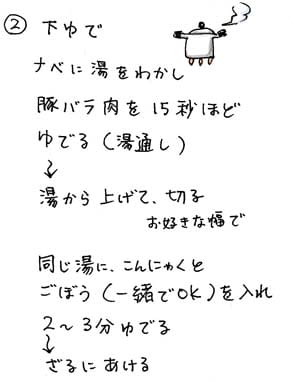 ② 下ゆで
ナベに湯をわかし
豚バラ肉を15秒ほど
ゆでる(湯通し)
↓
湯から上げて、切る
お好きな幅で
同じ湯に、こんにゃくと
ごぼう(一緒でOK)を入れ
2～3分ゆでる
↓
ざるにあける